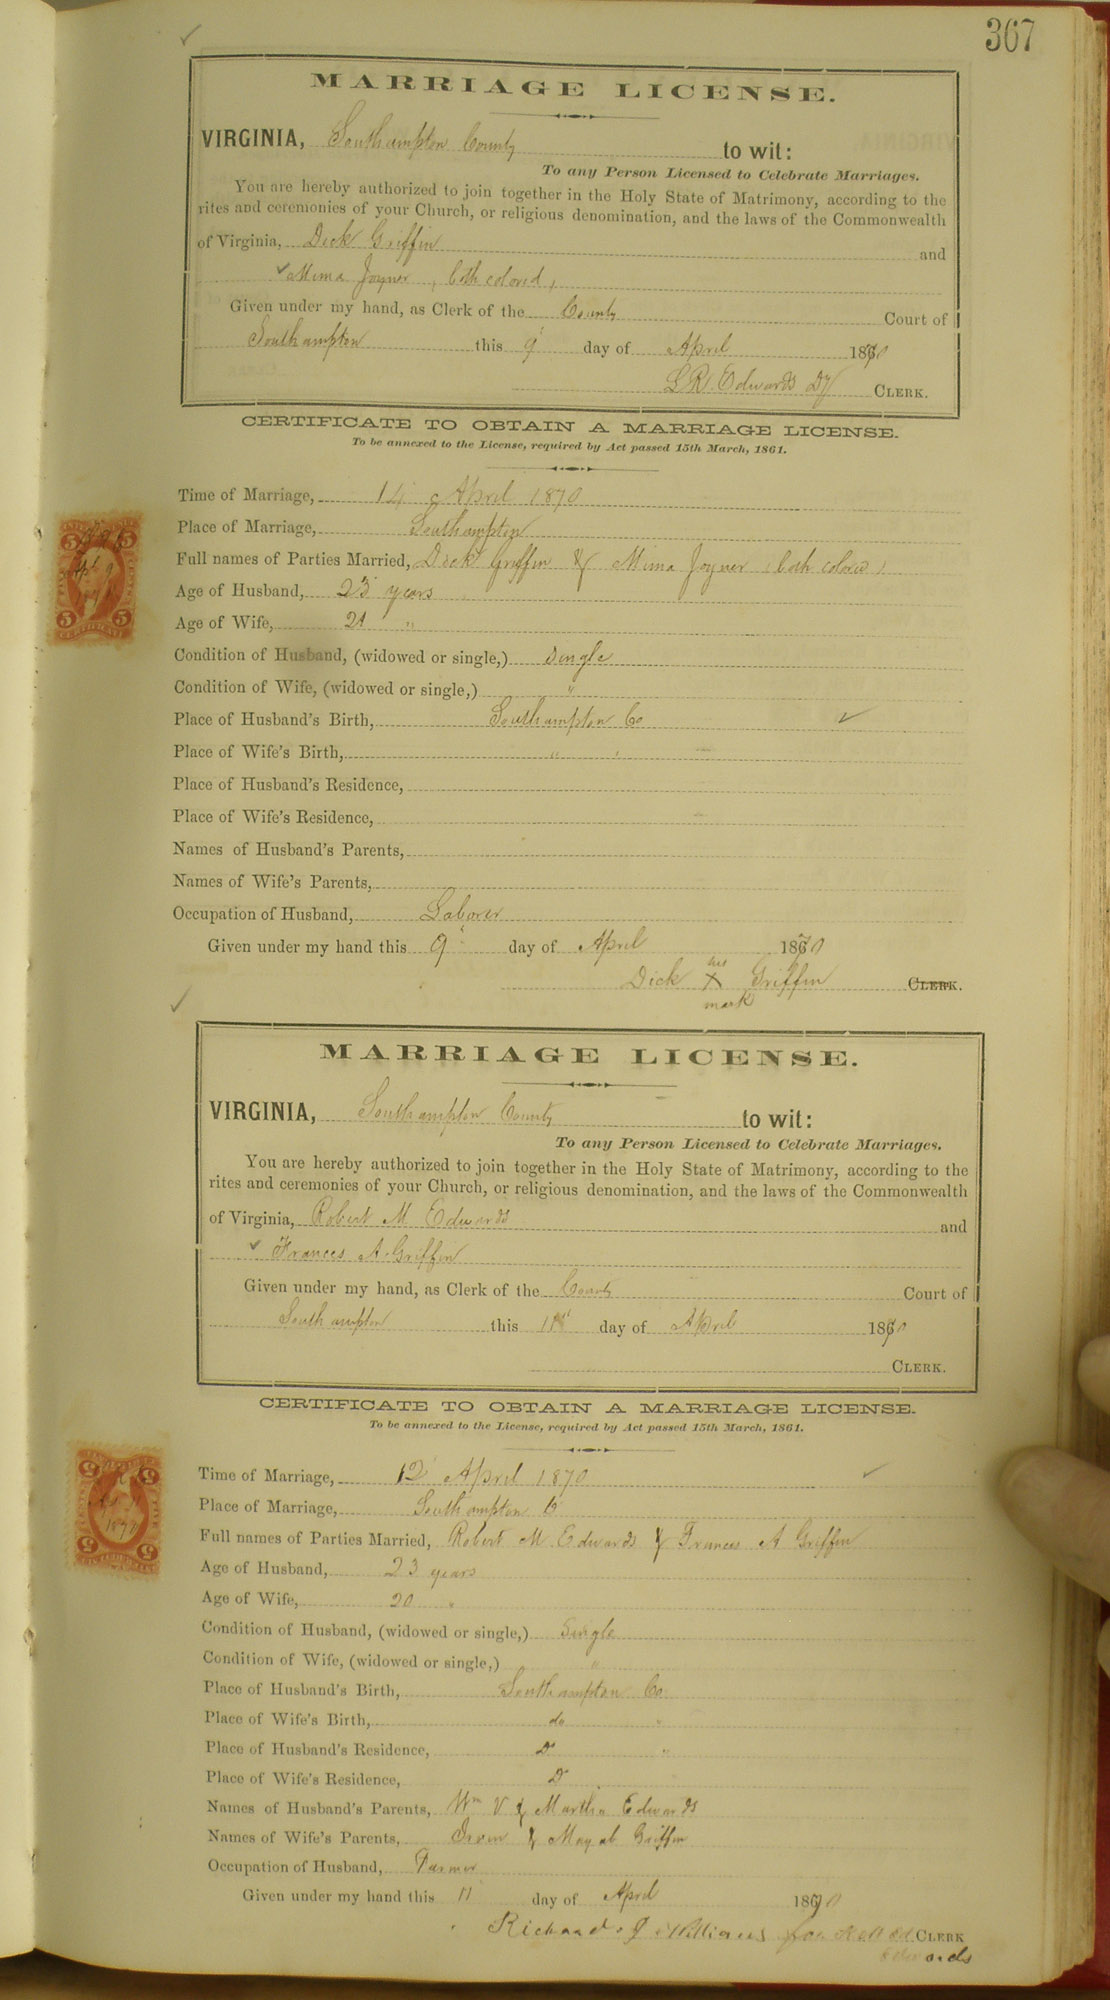 367
MARRIAGE LICENSE.
VIRGINIA, Southampton County to wit:
To any Person Licensed to Celebrate Marriages.
You are hereby authorized to join together in the Holy State of Matrimony, according to the
rites and ceremonies of your Church, or religious denomination, and the laws of the Commonwealth
of Virginia, Dick Griffin and
Mima Joyner, both colored,
Given under my hand, as Clerk of the County Court of
Southampton this 9 day of April 1870
L R Edwards Dy CLERK.
CERTIFICATE TO OBTAIN A MARRIAGE LICENSE.
To be annexed to the License, required by Act passed 15th March, 1861.
Time of Marriage, 14 April 1870
Place of Marriage, Southampton
Full names of Parties Married, Dick Griffin & Mima Joyner (both colored)
Age of Husband, 23 years
Age of Wife, 21 "
Condition of Husband, (widowed or single,) Single
Condition of Wife, (widowed or single,) "
Place of Husband's Birth, Southampton Co
Place of Wife's Birth, " "
Place of Husband's Residence,
Place of Wife's Residence,
Names of Husband's Parents,
Names of Wife's Parents,
Occupation of Husband, Laborer
Given under my hand this 9 day of April 1870
his
Dick X Griffin CLERK.
mark
MARRIAGE LICENSE.
VIRGINIA, Southampton County to wit:
To any Person Licensed to Celebrate Marriages.
You are hereby authorized to join together in the Holy State of Matrimony, according to the
rites and ceremonies of your Church, or religious denomination, and the laws of the Commonwealth
of Virginia, Robert M Edwards and
Frances A Griffin
Given under my hand, as Clerk of the County Court of
Southampton this day of April 1870
CLERK.
CERTIFICATE TO OBTAIN A MARRIAGE LICENSE.
To be annexed to the License, required by Act passed 15th March, 1861.
Time of Marriage, 12 April 1870
Place of Marriage, Southampton C
Full names of Parties Married, Robert M Edwards & Frances A Griffin
Age of Husband, 23 years
Age of Wife, 20 "
Condition of Husband, (widowed or single,) Single
Condition of Wife, (widowed or single,) "
Place of Husband's Birth, Southampton Co
Place of Wife's Birth, do "
Place of Husband's Residence, D "
Place of Wife's Residence, D
Names of Husband's Parents, Wm V & Martha Edwards
Names of Wife's Parents, & Griffin
Occupation of Husband, Farmer
Given under my hand this 11 day of April 1870
Richard J Williams for CLERK
Edwards